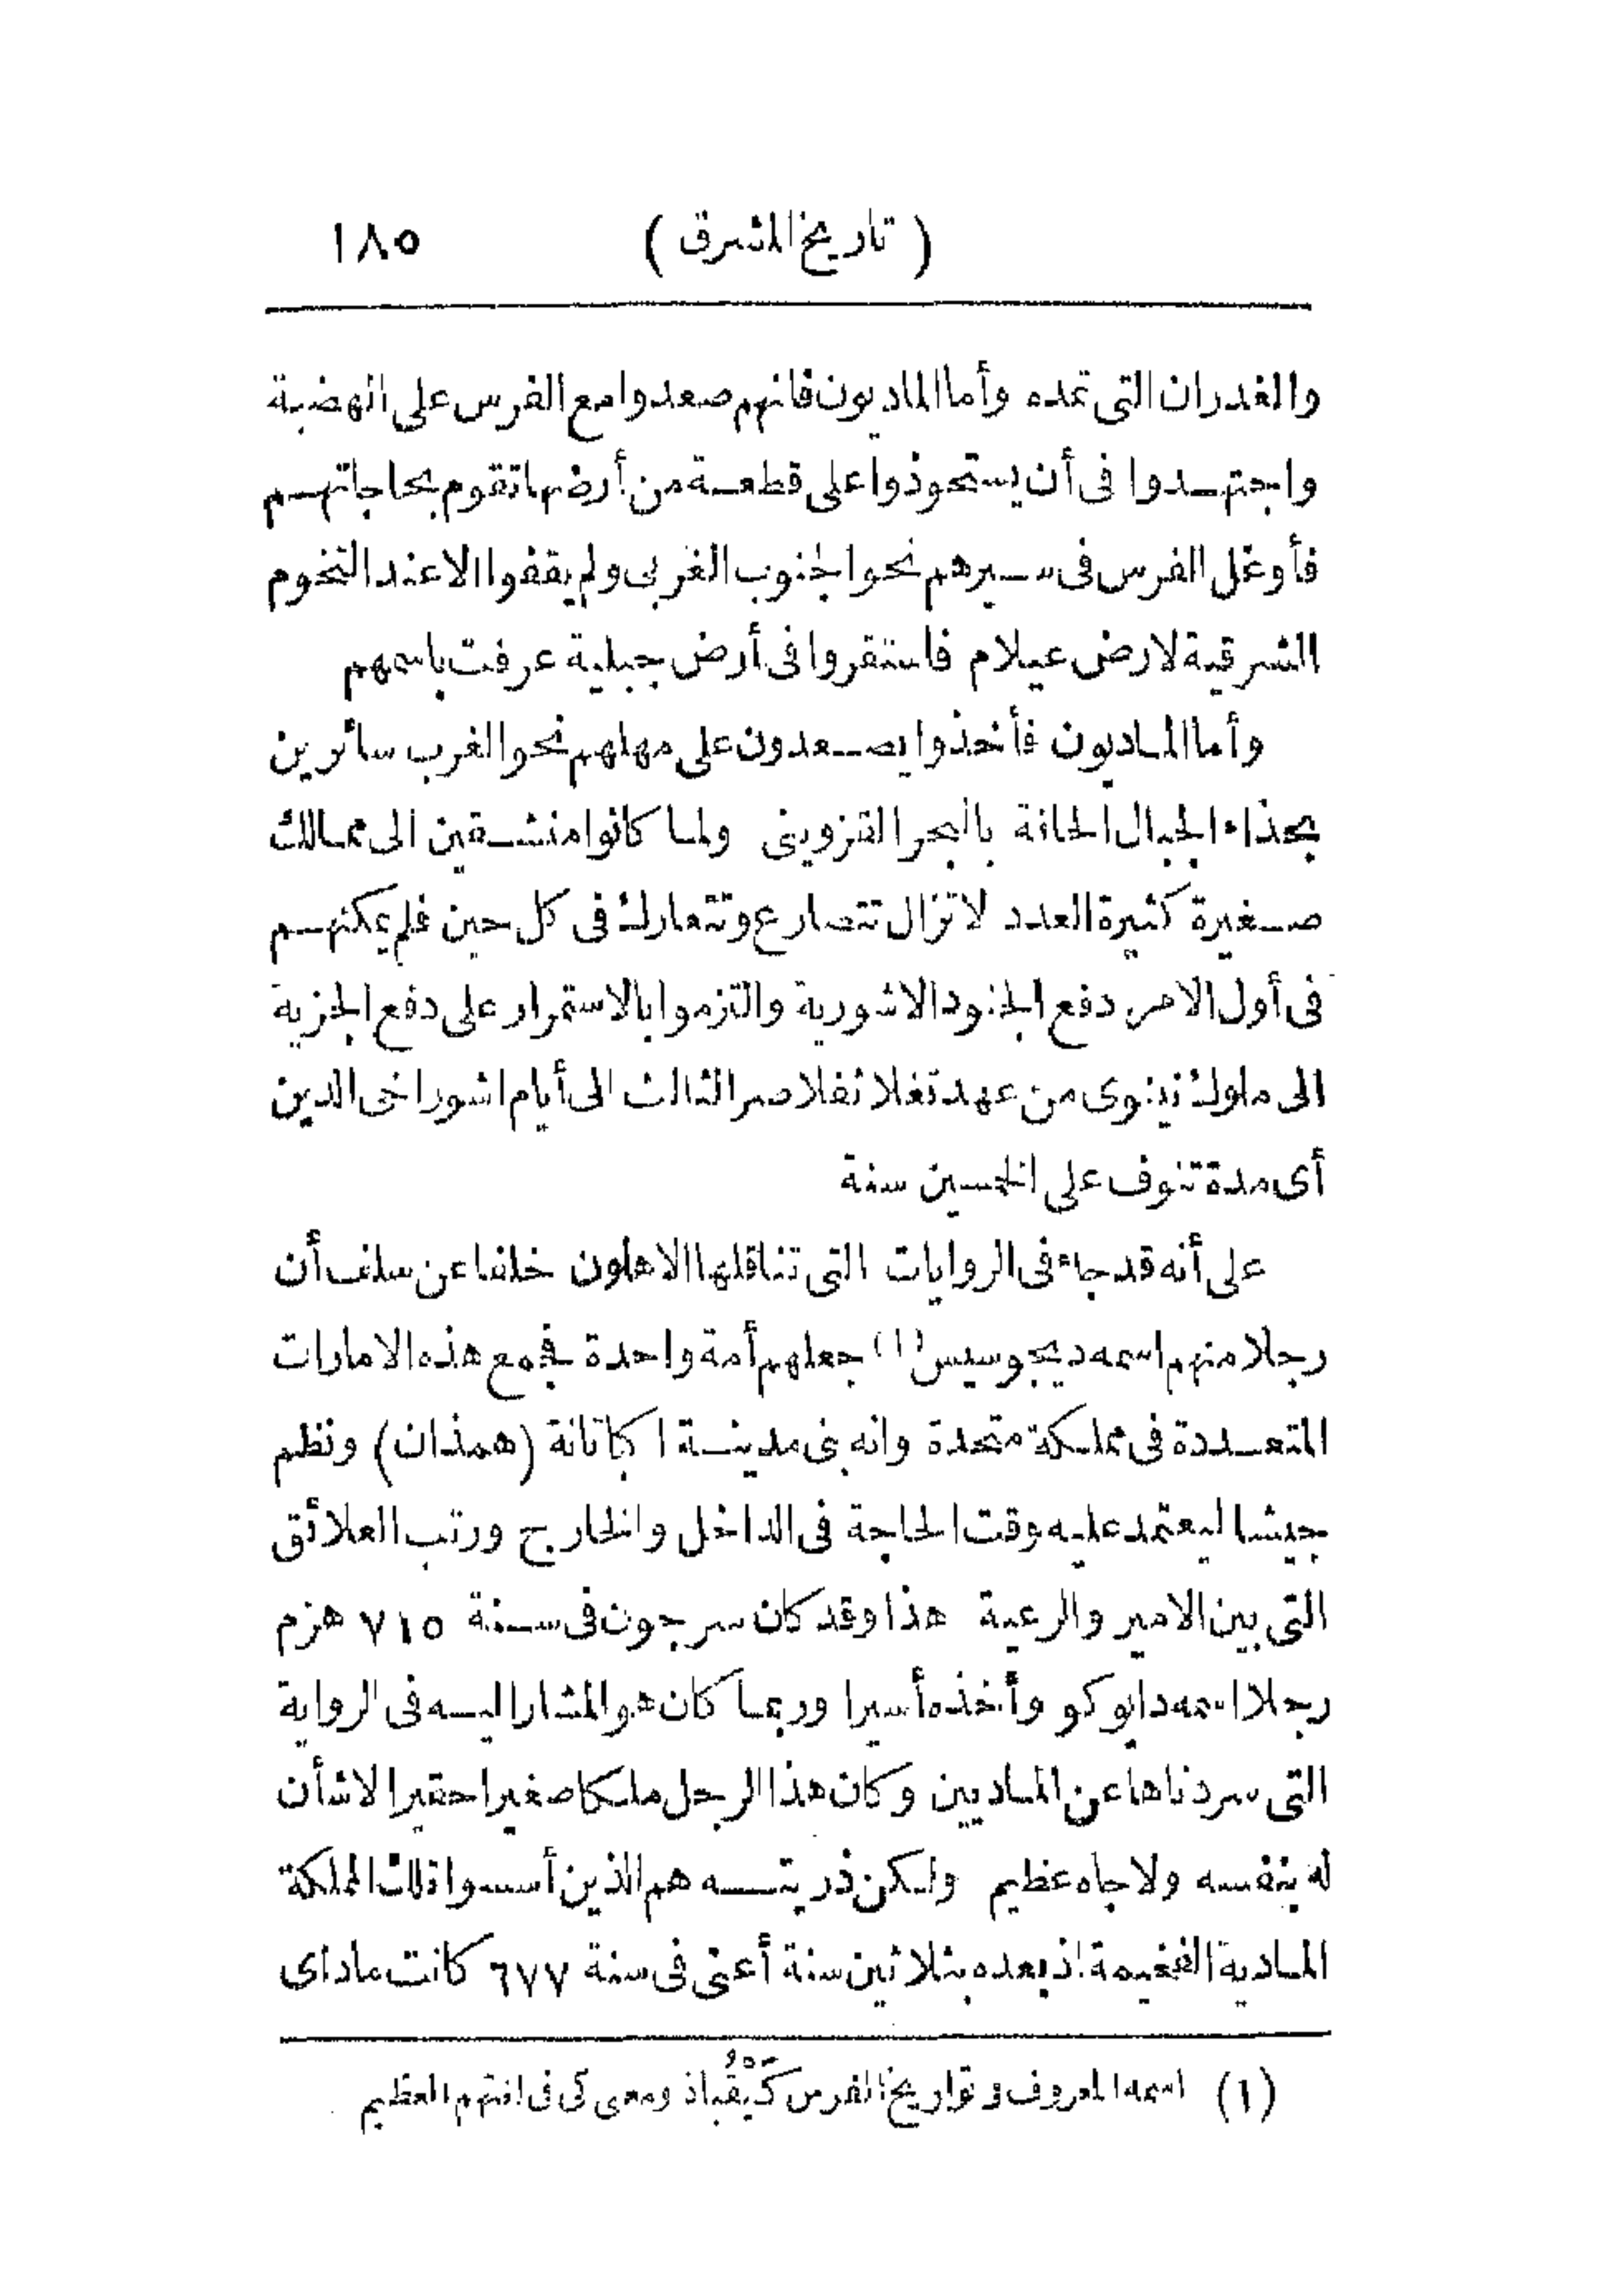 ( تاريخ المشرق ) ١٨٥
والغدران التى تمده وأما الماديون فانهم صعدوا مع الفرس على الهضبة
واجتهدوا فى أن يستحوذوا على قطعة من أرضها تقوم بحاجاتهم
فأوغل الفرس فى سيرهم نحوا لجنوب الغربى ولم يقفوا الا عند التخوم
الشرقية لارض عيلام فاستقروا فى أرض جبلية عرفت باسمهم
وأما الماديون فأخذوا يصعدون على مهلهم نحو الغرب سائرين
بحذاء الجبال الحافة بالبحر القزوينى ولما كانوا منشقين الى ممالك
صغيرة كثيرة العدد لا تزال تتصارع وتتعارك فى كل حين فلم يمكنهم
فى أول الامر دفع الجنود الاشورية والتزموا بالاستمرار على دفع الجزية
الى ملوك نينوى من عهد تغلا ثفلا صر الثالث الى أيام اشور اخى الدين
أى مدة تنوف على الخمسين سنة
على أنه قد جاء فى الروايات التى تناقلها الاهلون خلفا عن سلف أن
رجلا منهم اسمه ديجوسيس (١) جعلهم أمة واحدة فجمع هذه الامارات
المتعددة فى مملكة متحدة وانه بنى مدينة اكباتانة (همذان) ونظم
جيشا ليعتمد عليه وقت الحاجة فى الداخل والخارج ورتب العلائق
التى بين الامير والرعية هذا وقد كان سرجون فى سنة ٧١٥ هزم
رجلا اسمه دايوكو وأخذه أسيرا وربما كان هو المشار اليه فى الرواية
التى سردناها عن الماديين وكان هذا الرجل ملكا صغيرا حقيرا لا شأن
له بنفسه ولا جاه عظيم ولكن ذريته هم الذين أسسوا تلك المملكة
المادية الفخيمة اذ بعده بثلاثين سنة أعنى فى سنة ٦٧٧ كانت ماداى
(١) اسمه المعروف فى تواريخ الفرس كَيْقُباذ ومعنى كى فى لغتهم العظيم